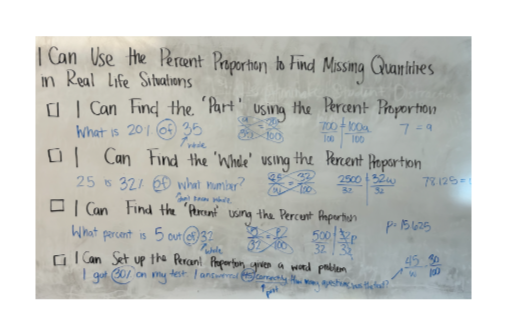 I Can Use the Percent Proportion to Find Missing Quantities
in Real Life Situations
I Can Find the 'Part' using the Percent Proportion
What is 20% of 35
whole
700 100a
100 100
7 = a
I Can Find the 'Whole' using the Percent Proportion
25 is 32% of what number?
don't know whole
25 32
w 100
2500 32w
32 32
78.125 =
I Can Find the 'Percent' using the Percent Proportion
What percent is 5 out of 32
whole
5 = P
32 100
500 32p
32 32
p = 15.625
I Can Set up the Percent Proportion given a word problem
I got 80% on my test I answered 45 correctly How many questions was the test?
part
45 80
w 100